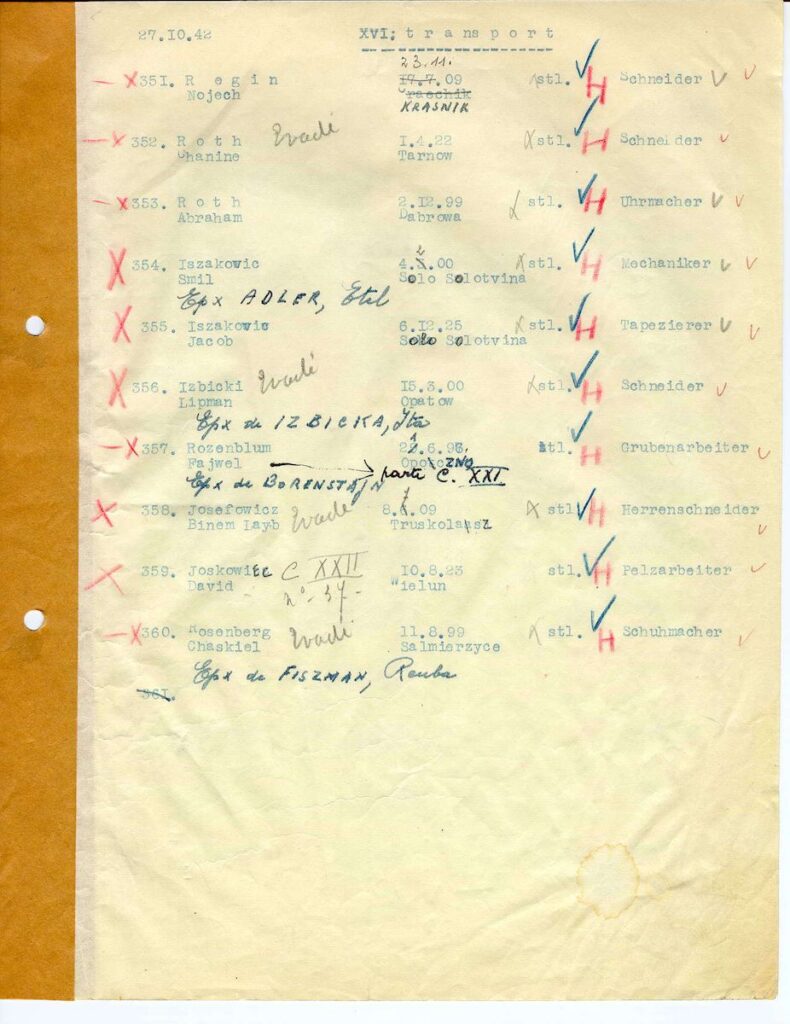 27.10.42 XVI; transport
23.11.
351. Regin 17.7.09 stl. H Schneider
Nojech Graschik
KRASNIK
352. Roth Evadé 1.4.22 stl. H Schneider
Chanine Tarnow
353. Roth 2.12.99 stl. H Uhrmacher
Abraham Dabrowa
2
354. Iszakovic 4.3.00 stl. H Mechaniker
Smil Solo Solotvina
Epx ADLER, Etel
355. Iszakovic 6.12.25 stl. H Tapezierer
Jacob Solo Solotvina
356. Izbicki Evadé 15.3.00 stl. H Schneider
Lipman Opatow
Epx de IZBICKA, Ita
357. Rozenblum stl. H Grubenarbeiter
Fajwel OpoczNO
Epx de BORENSTAJN parti C. XXI
7
358. Josefowicz Evadé stl. H Herrenschneider
Binem Layb
359. Joskowiec C XXII 10.8.23 stl. H Pelzarbeiter
David n° 37- Wielun
360. Rosenberg Evadé 11.8.99 stl. H Schuhmacher
Chaskiel Salmierzyce
Epx de FISZMAN, Reuba
361.